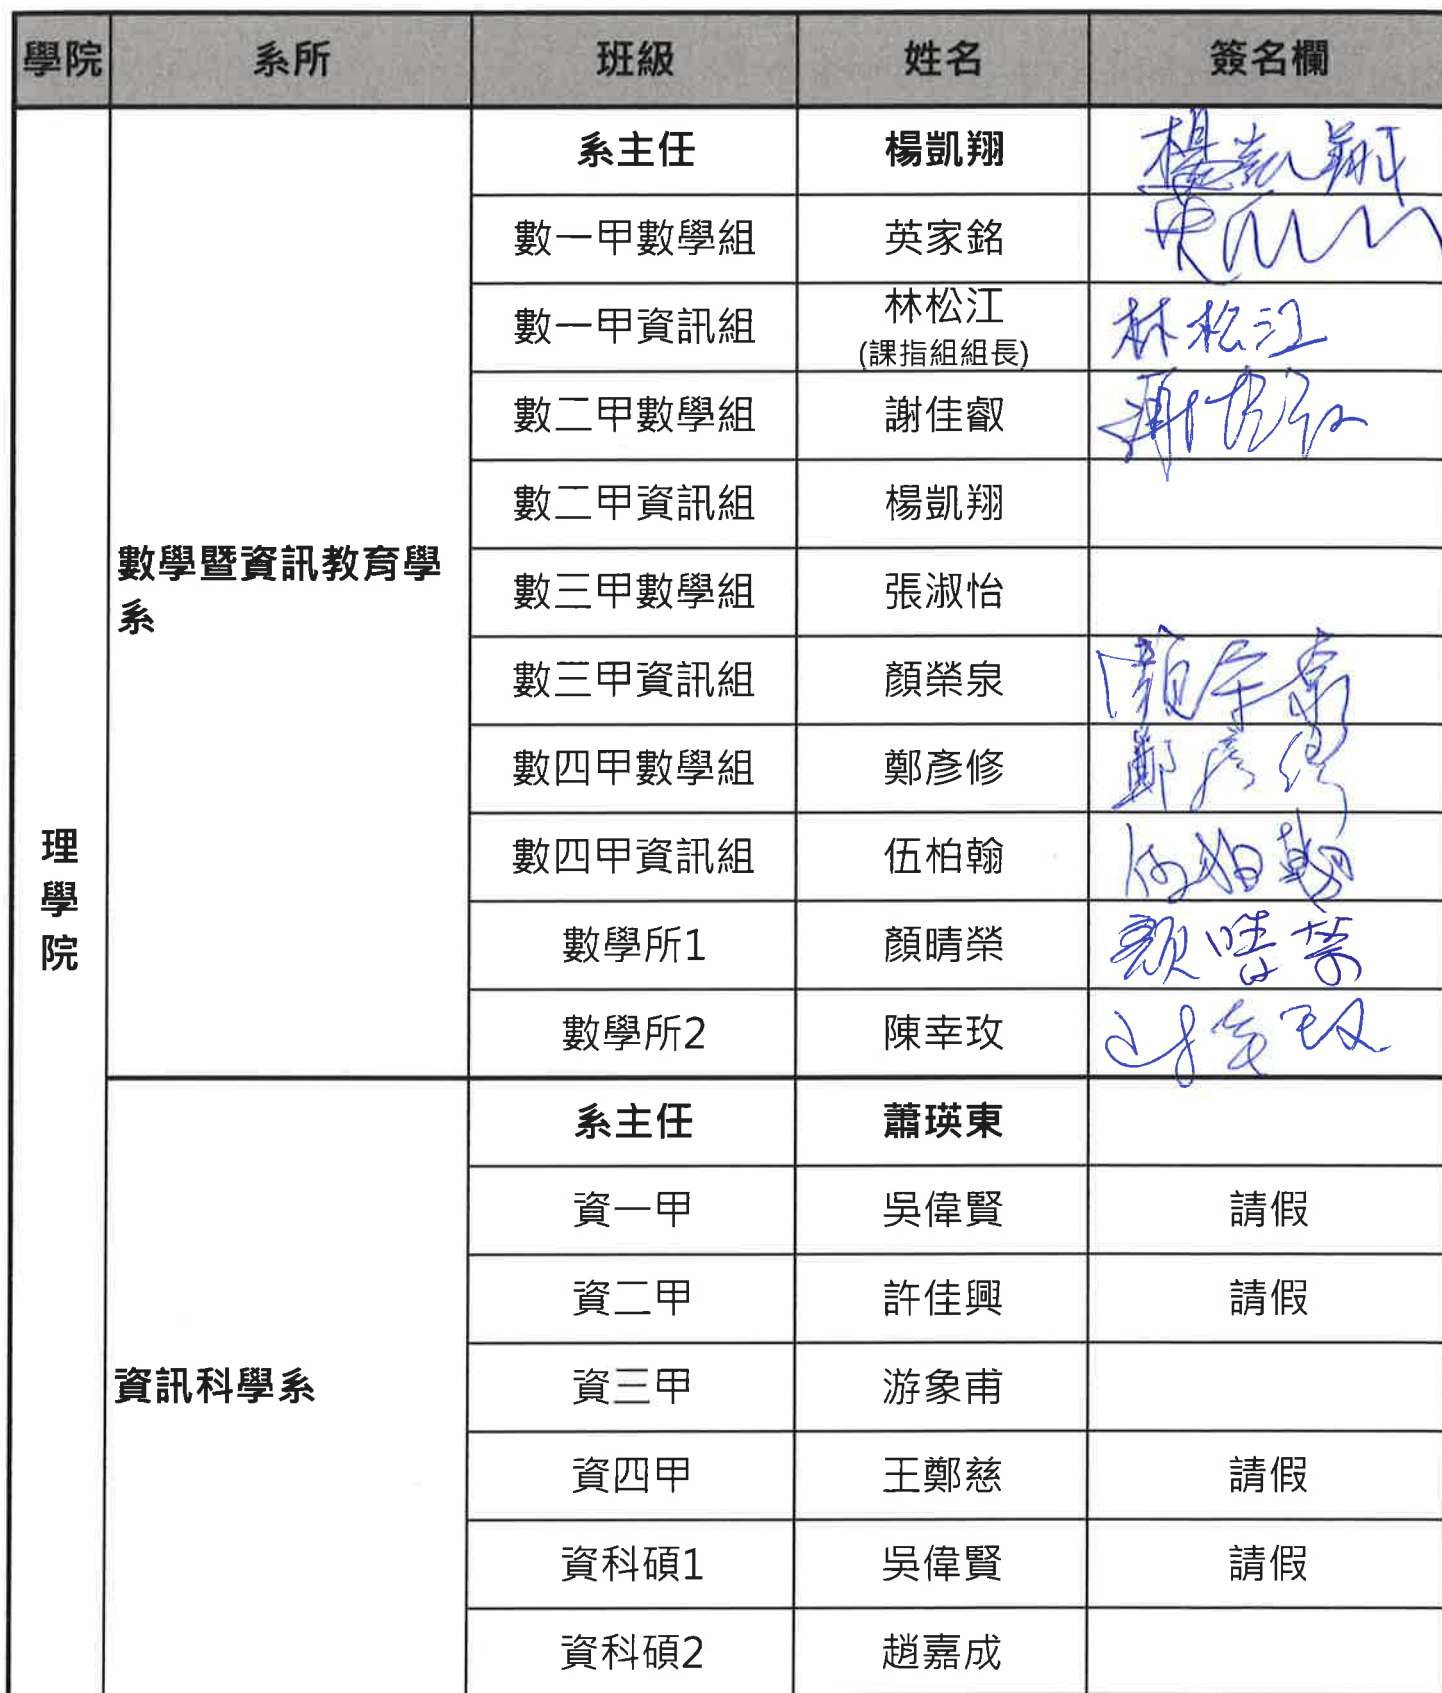 學院 系所 班級 姓名 簽名欄
理學院
數學暨資訊教育學系
系主任 楊凱翔 楊凱翔
數一甲數學組 英家銘
數一甲資訊組 林松江 (課指組組長) 林松江
數二甲數學組 謝佳叡
數二甲資訊組 楊凱翔
數三甲數學組 張淑怡
數三甲資訊組 顏榮泉
數四甲數學組 鄭彥修 鄭彥修
數四甲資訊組 伍柏翰 伍柏翰
數學所1 顏晴榮 顏晴榮
數學所2 陳幸玫
資訊科學系
系主任 蕭瑛東
資一甲 吳偉賢 請假
資二甲 許佳興 請假
資三甲 游象甫
資四甲 王鄭慈 請假
資科碩1 吳偉賢 請假
資科碩2 趙嘉成